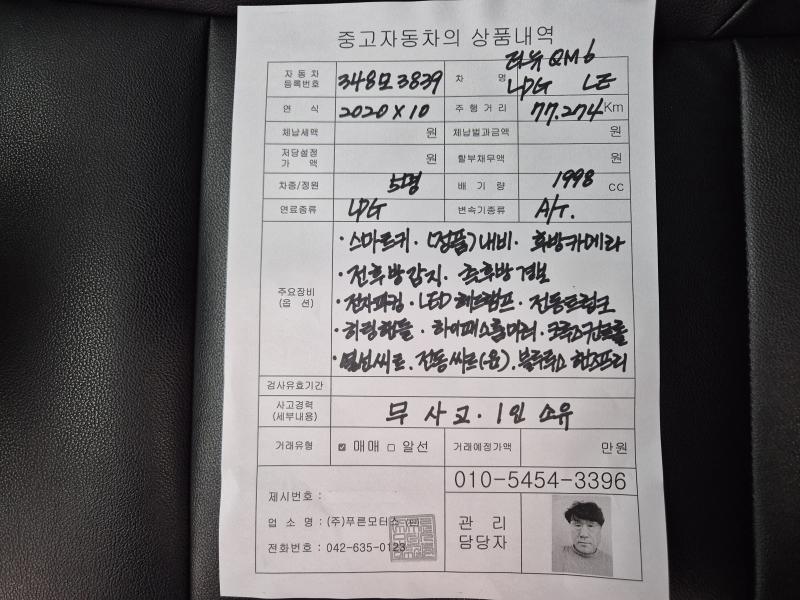 중고자동차의 상품내역
자동차 등록번호 348모3839 차 명 더뉴 QM6 LPG LE
연 식 2020 X 10 주행거리 77.274 Km
체납세액 원 체납벌과금액 원
저당설정 가 액 원 할부채무액 원
차종/정원 5명 배 기 량 1998 cc
연료종류 LPG 변속기종류 A/T.
주요장비 (옵 션)
·스마트키·(정품)내비·후방카메라
·전후방감지·측후방경보
·전자파킹·LED헤드램프·전동트렁크
·히팅핸들·하이패스룸미러·크루즈컨트롤
·열선씨트.전동씨트(운).블루투스 핸즈프리
검사유효기간
사고경력 (세부내용) 무 사고·1인 소유
거래유형 ☑ 매매 □ 알선 거래예정가액 만원
010-5454-3396
제시번호 :
업 소 명 : (주)푸른모터스 (인)
전화번호 : 042-635-0123
관 리
담당자